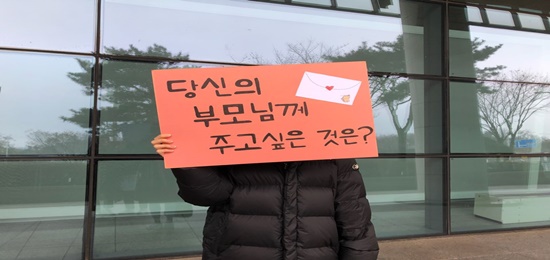 당신의
부모님께
주고싶은 것은?